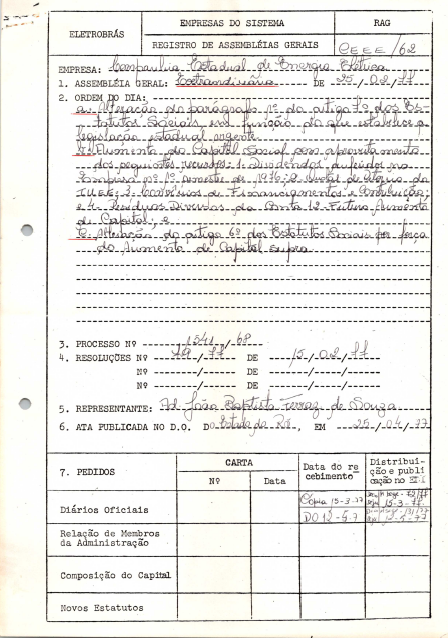 ELETROBRÁS
EMPRESAS DO SISTEMA
RAG
REGISTRO DE ASSEMBLÉIAS GERAIS
CEEE/62
EMPRESA: Companhia Estadual de Energia Elétrica
1. ASSEMBLÉIA GERAL: Extraordinária DE 25/02/77
2. ORDEM DO DIA:
a. Alteração do parágrafo 1º do artigo 7º dos Es-
tatutos Sociais em função do que estabelece a
legislação estadual vigente.
b. Aumento do Capital Social com aproveitamento
dos seguintes recursos: 1. Dividendos auferidos na
no 1º semestre de 1976; 2.
I.U.E.E; 3. Convênios de Financiamentos e Contribuição;
e 4. Resíduos Diversos da Conta 12-Futuro Aumento
de Capital; e
c. Alteração do artigo 6º dos Estatutos Sociais por força
do Aumento de Capital supra
3. PROCESSO Nº 1541/68
4. RESOLUÇÕES Nº 79/77 DE 15/02/77
Nº / DE / /
Nº / DE / /
5. REPRESENTANTE: Ad. João Baptista Ferraz de Souza
6. ATA PUBLICADA NO D.O. Do Estado do R.S., EM 25/04/77
7. PEDIDOS
CARTA
Nº
Data
Data do re
cebimento
Distribui-
ção e publi
cação no
Diários Oficiais
Cópia 15-3-77
15-3-77
DO 12-5-77
12-5-77
Relação de Membros
da Administração
Composição do Capital
Novos Estatutos